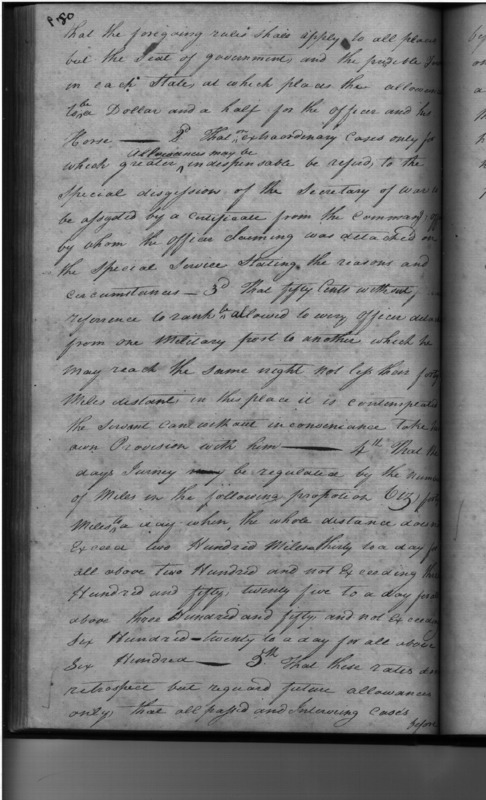 p 80
that the foregoing rules shall apply to all places
but the Seat of government and the
in each State at which places the allowance
to be a Dollar and a half for the officer and his
Horse — 2d That in extraordinary cases only for
which greater Allowances may be indispensable be refered to the
Special of the Secretary of war
be by a certificate from the Command
by whom the officer was detached on
the Special Service Stating the reasons and
circumstances — 3d That fifty Cents without
reference to rank be allowed to every officer
from one Military post to another which he
may reach the same night not less than forty
Miles distant in this place it is contemplated
the Servant can without inconvenience take his
own Provision with him — 4th That the
days Jurney may be regulated by the number
of Miles in the following propotion Viz forty
Miles to a day when the whole distance does not
Exceed two Hundred Miles thirty to a day for
all above two Hundred and not Exceeding three
Hundred and fifty twenty five to a day for all
above three Hundred and fifty and not Exceeding
Six Hundred — twenty to a day for all above
Six Hundred — 5th That these rates do not
retrospect but reguard future allowances
only, that all passed and Cases
before